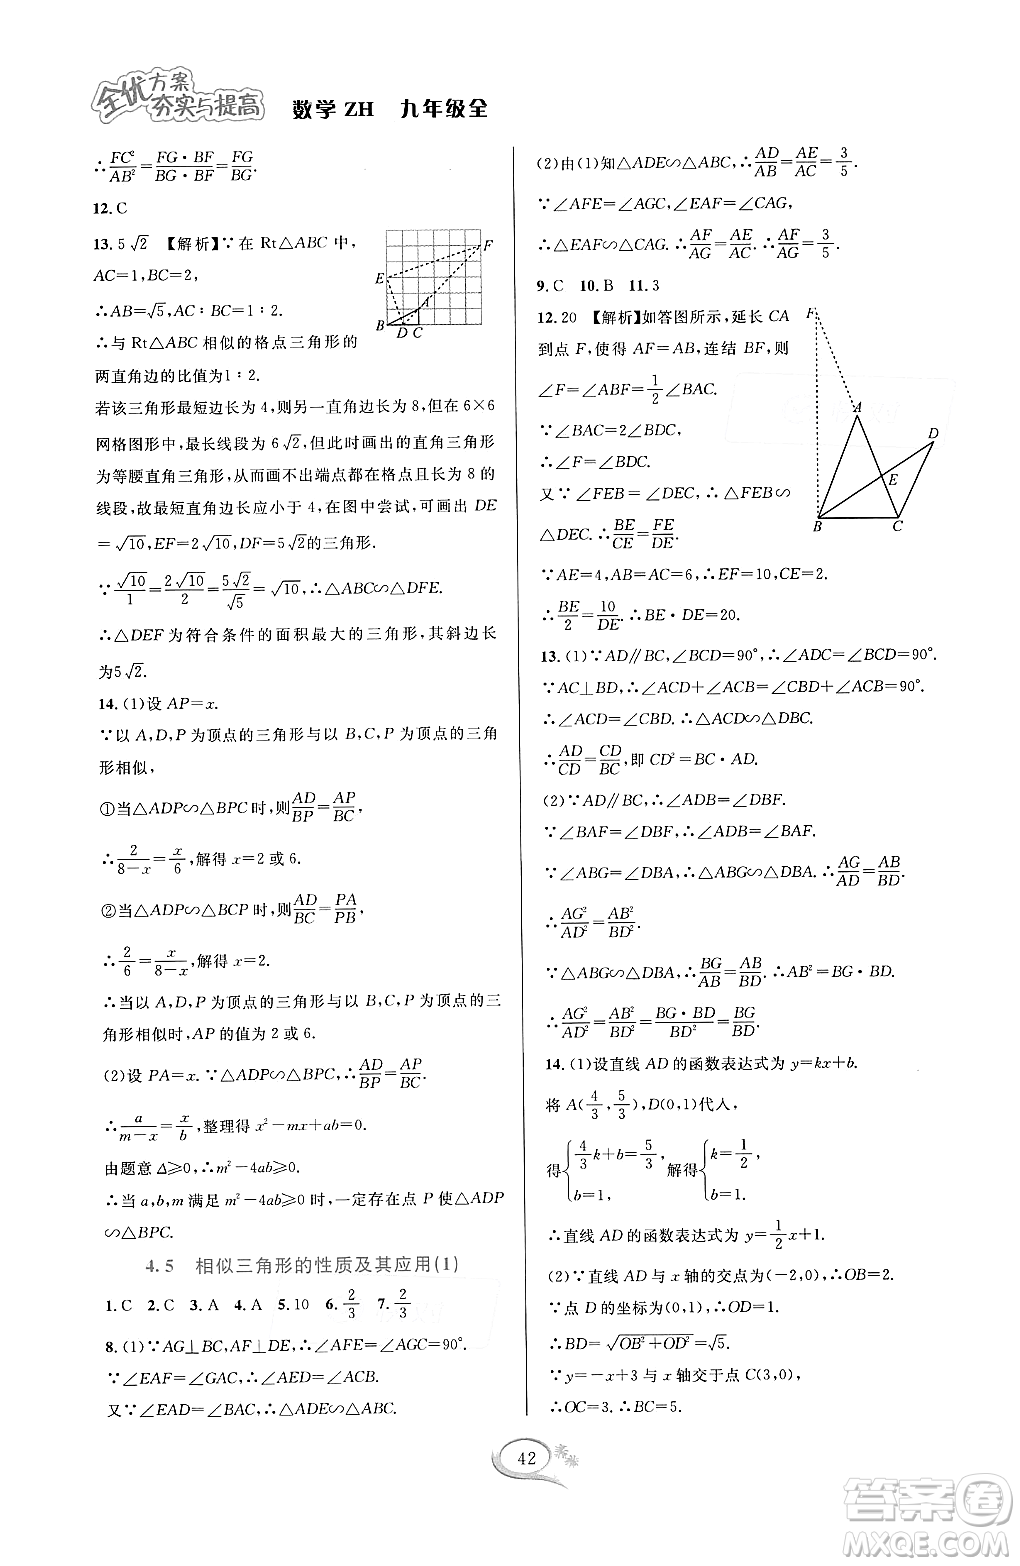 全优方案
夯实与提高
数学 ZH 九年级全
∴FC²/AB²=FG·BF/BG·BF=FG/BG.
12.C
13.5√2 【解析】∵在 Rt△ABC 中,
AC=1,BC=2,
∴AB=√5,AC∶BC=1∶2.
∴与 Rt△ABC 相似的格点三角形的
两直角边的比值为1∶2.
若该三角形最短边长为 4,则另一直角边长为 8,但在 6×6
网格图形中,最长线段为 6√2,但此时画出的直角三角形
为等腰直角三角形,从而画不出端点都在格点且长为 8 的
线段,故最短直角边长应小于 4,在图中尝试,可画出 DE
=√10,EF=2√10,DF=5√2的三角形.
∵√10/1=2√10/2=5√2/√5=√10,∴△ABC∽△DFE.
∴△DEF 为符合条件的面积最大的三角形,其斜边长
为5√2.
F
E
A
B
D
C
14.(1)设 AP=x.
∵以 A,D,P 为顶点的三角形与以 B,C,P 为顶点的三角
形相似,
①当△ADP∽△BPC 时,则AD/BP=AP/BC,
∴2/(8-x)=x/6,解得 x=2 或 6.
②当△ADP∽△BCP 时,则AD/BC=PA/PB,
∴2/6=x/(8-x),解得 x=2.
∴当以 A,D,P 为顶点的三角形与以 B,C,P 为顶点的三
角形相似时,AP 的值为 2 或 6.
(2)设 PA=x.∵△ADP∽△BPC,∴AD/BP=AP/BC.
∴a/(m-x)=x/b,整理得 x²-mx+ab=0.
由题意 Δ≥0,∴m²-4ab≥0.
∴当 a,b,m 满足 m²-4ab≥0时,一定存在点 P 使△ADP
∽△BPC.
4.5 相似三角形的性质及其应用(1)
1.C 2.C 3.A 4.A 5.10 6.2/3 7.2/3
8.(1)∵AG⊥BC,AF⊥DE,∴∠AFE=∠AGC=90°.
∵∠EAF=∠GAC,∴∠AED=∠ACB.
又∵∠EAD=∠BAC,∴△ADE∽△ABC.
(2)由(1)知△ADE∽△ABC,∴AD/AB=AE/AC=3/5.
∵∠AFE=∠AGC,∠EAF=∠CAG,
∴△EAF∽△CAG.∴AF/AG=AE/AC.∴AF/AG=3/5.
9.C 10.B 11.3
12.20 【解析】如答图所示,延长 CA
到点 F,使得 AF=AB,连结 BF,则
∠F=∠ABF=1/2∠BAC.
∵∠BAC=2∠BDC,
∴∠F=∠BDC.
又∵∠FEB=∠DEC,∴△FEB∽
△DEC.∴BE/CE=FE/DE.
∵AE=4,AB=AC=6,∴EF=10,CE=2.
∴BE/2=10/DE.∴BE·DE=20.
F
A
D
E
B
C
13.(1)∵AD∥BC,∠BCD=90°,∴∠ADC=∠BCD=90°.
∵AC⊥BD,∴∠ACD+∠ACB=∠CBD+∠ACB=90°.
∴∠ACD=∠CBD.∴△ACD∽△DBC.
∴AD/CD=CD/BC,即 CD²=BC·AD.
(2)∵AD∥BC,∴∠ADB=∠DBF.
∵∠BAF=∠DBF,∴∠ADB=∠BAF.
∵∠ABG=∠DBA,∴△ABG∽△DBA.∴AG/AD=AB/BD.
∴AG²/AD²=AB²/BD².
∵△ABG∽△DBA,∴BG/AB=AB/BD.∴AB²=BG·BD.
∴AG²/AD²=AB²/BD²=BG·BD/BD²=BG/BD.
14.(1)设直线 AD 的函数表达式为 y=kx+b.
将 A(4/3,5/3),D(0,1)代人,
得{4/3k+b=5/3, b=1, 解得{k=1/2, b=1.
∴直线 AD 的函数表达式为 y=1/2x+1.
(2)∵直线 AD 与 x 轴的交点为(-2,0),∴OB=2.
∵点 D 的坐标为(0,1),∴OD=1.
∴BD=√(OB²+OD²)=√5.
∵y=-x+3 与 x 轴交于点 C(3,0),
∴OC=3.∴BC=5.
42
答案圈
MXQE.COM